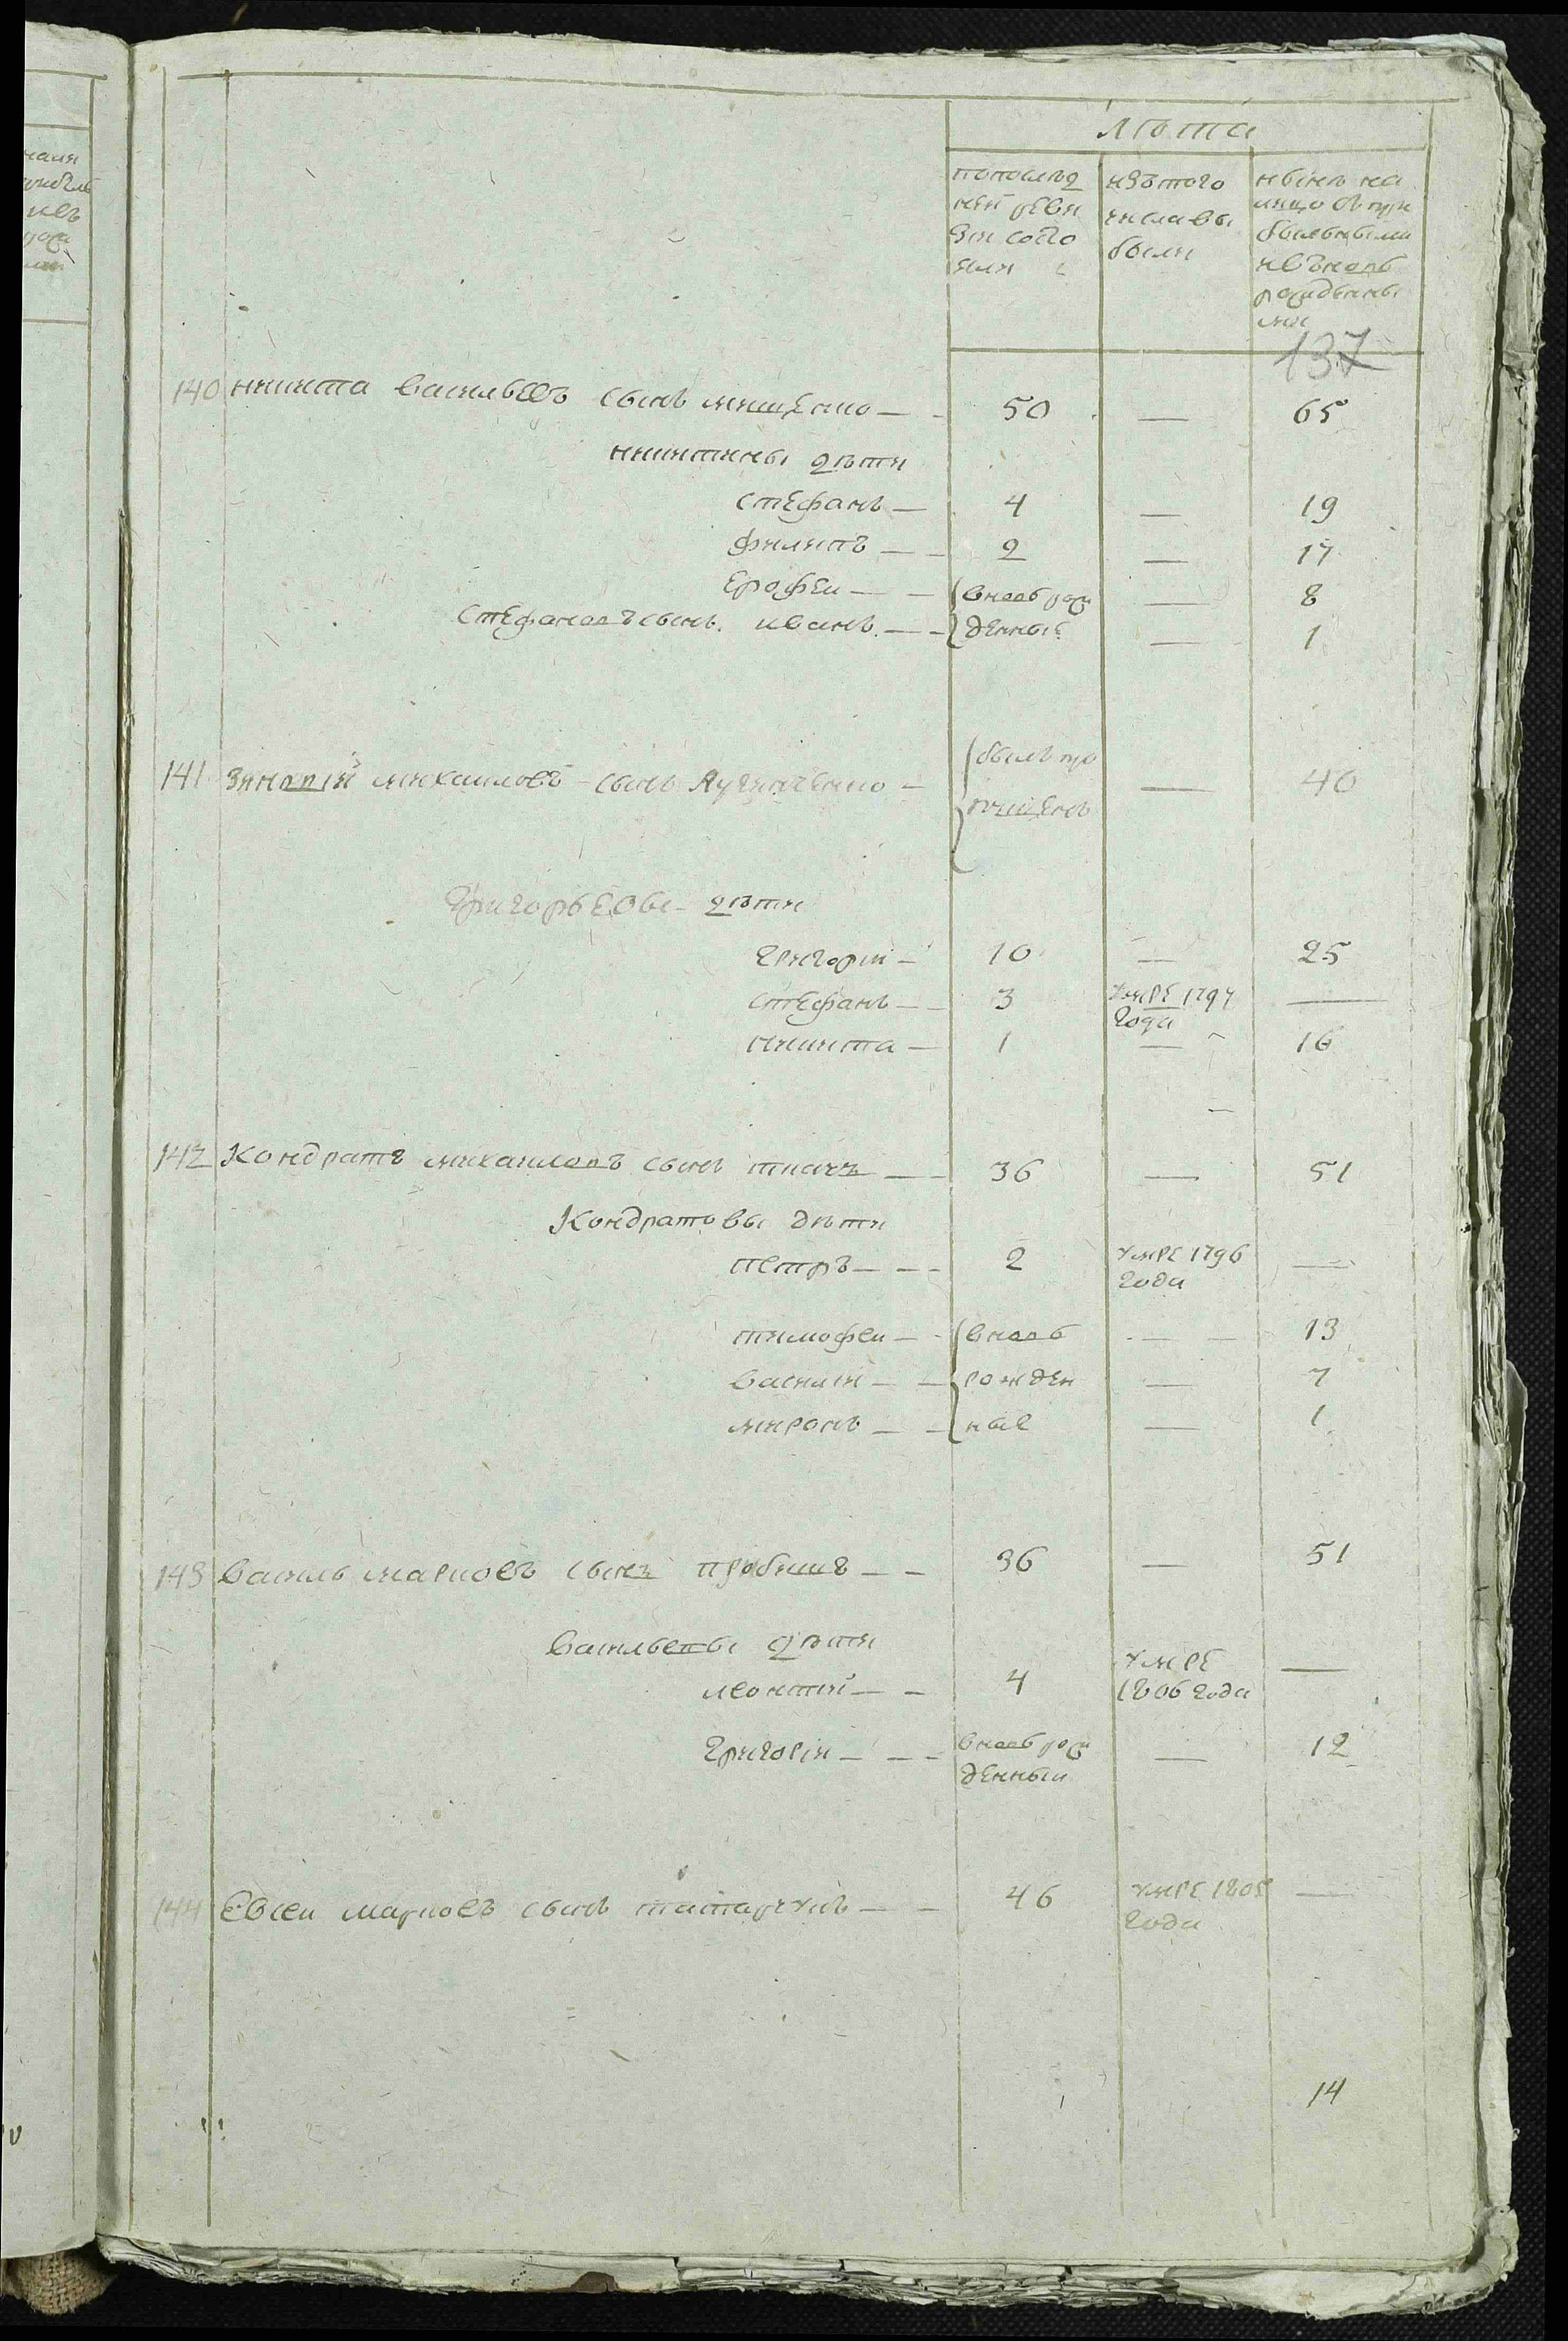 лѣта
попослѣд
ней реви
зіи состо
яли
изтого
числа вы
были
нынѣ на
лицо съ при
былыми
и въновь
рожденны
ми
137
140 никита васильевъ сынъ мищенко — 50 — 65
никитины дѣти
стефанъ — 4 — 19
филипъ — 2 — 17
ерофеи — вновь рож — 8
стефановъ сынъ иванъ — денные — 1
141 зиновій михаиловъ сынъ — былъ про — 40
пущенъ
григорьевы дѣти
григорій — 10 — 25
стефанъ — 3 умре 1797 —
года
никита — 1 — 16
142 Кондратъ михаиловъ сынъ ткачъ — 36 — 51
Кондратовы дѣти
петръ — 2 умре 1796 —
года
тимофеи — вновь — 13
василій — рожден — 7
миронъ — ные — 1
143 василь марковъ сынъ — 36 — 51
васильевы дѣти
леонтій — 4 умре —
1806 года
григорій — вновь рож — 12
денныи
144 Евсеи марковъ сынъ татарчукъ — 46 умре 1805 —
года
14